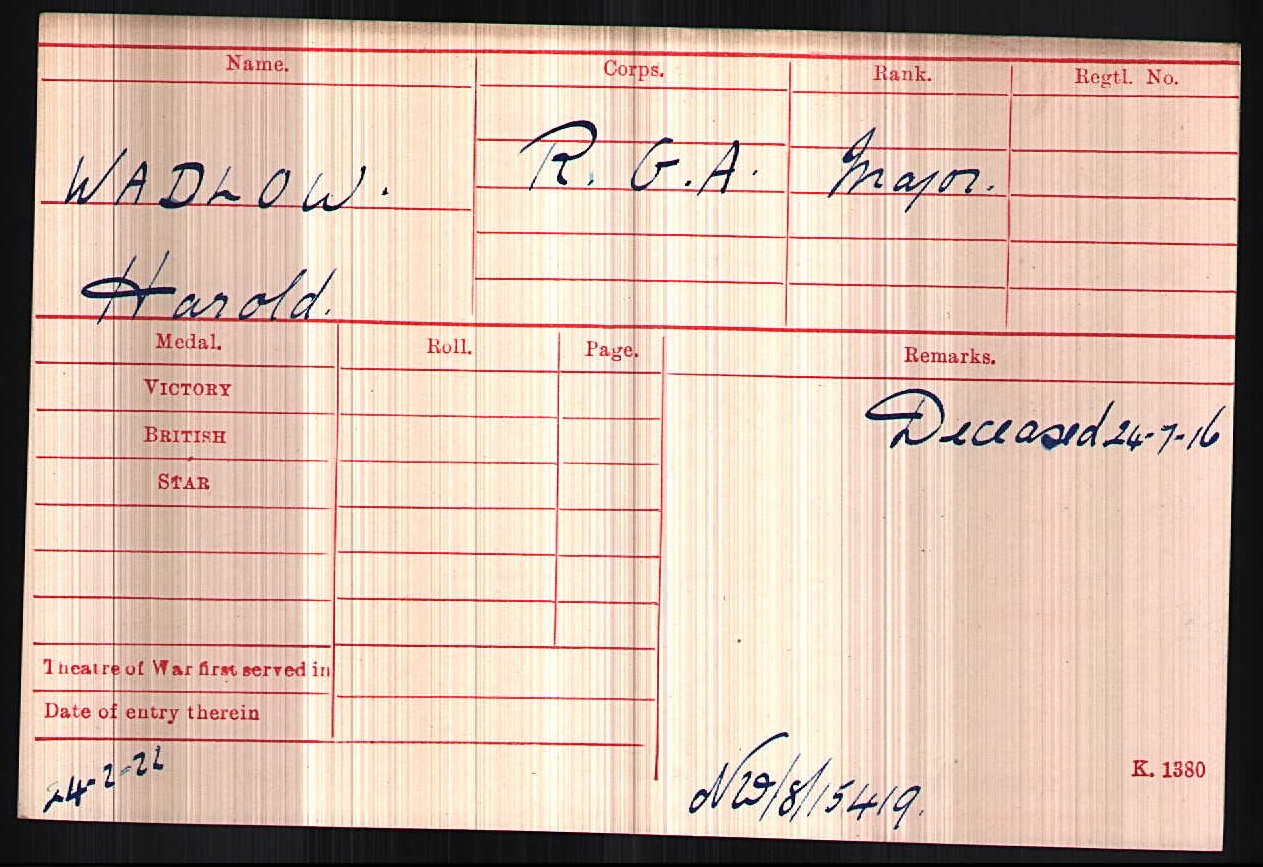 Name. Corps. Rank. Regtl. No.
WADLOW. R. G. A. Major.
Harold.
Medal. Roll. Page. Remarks.
VICTORY
Deceased 24-7-16
BRITISH
STAR
Theatre of War first served in
Date of entry therein
24-2-22
K. 1380
NW/8/15419.